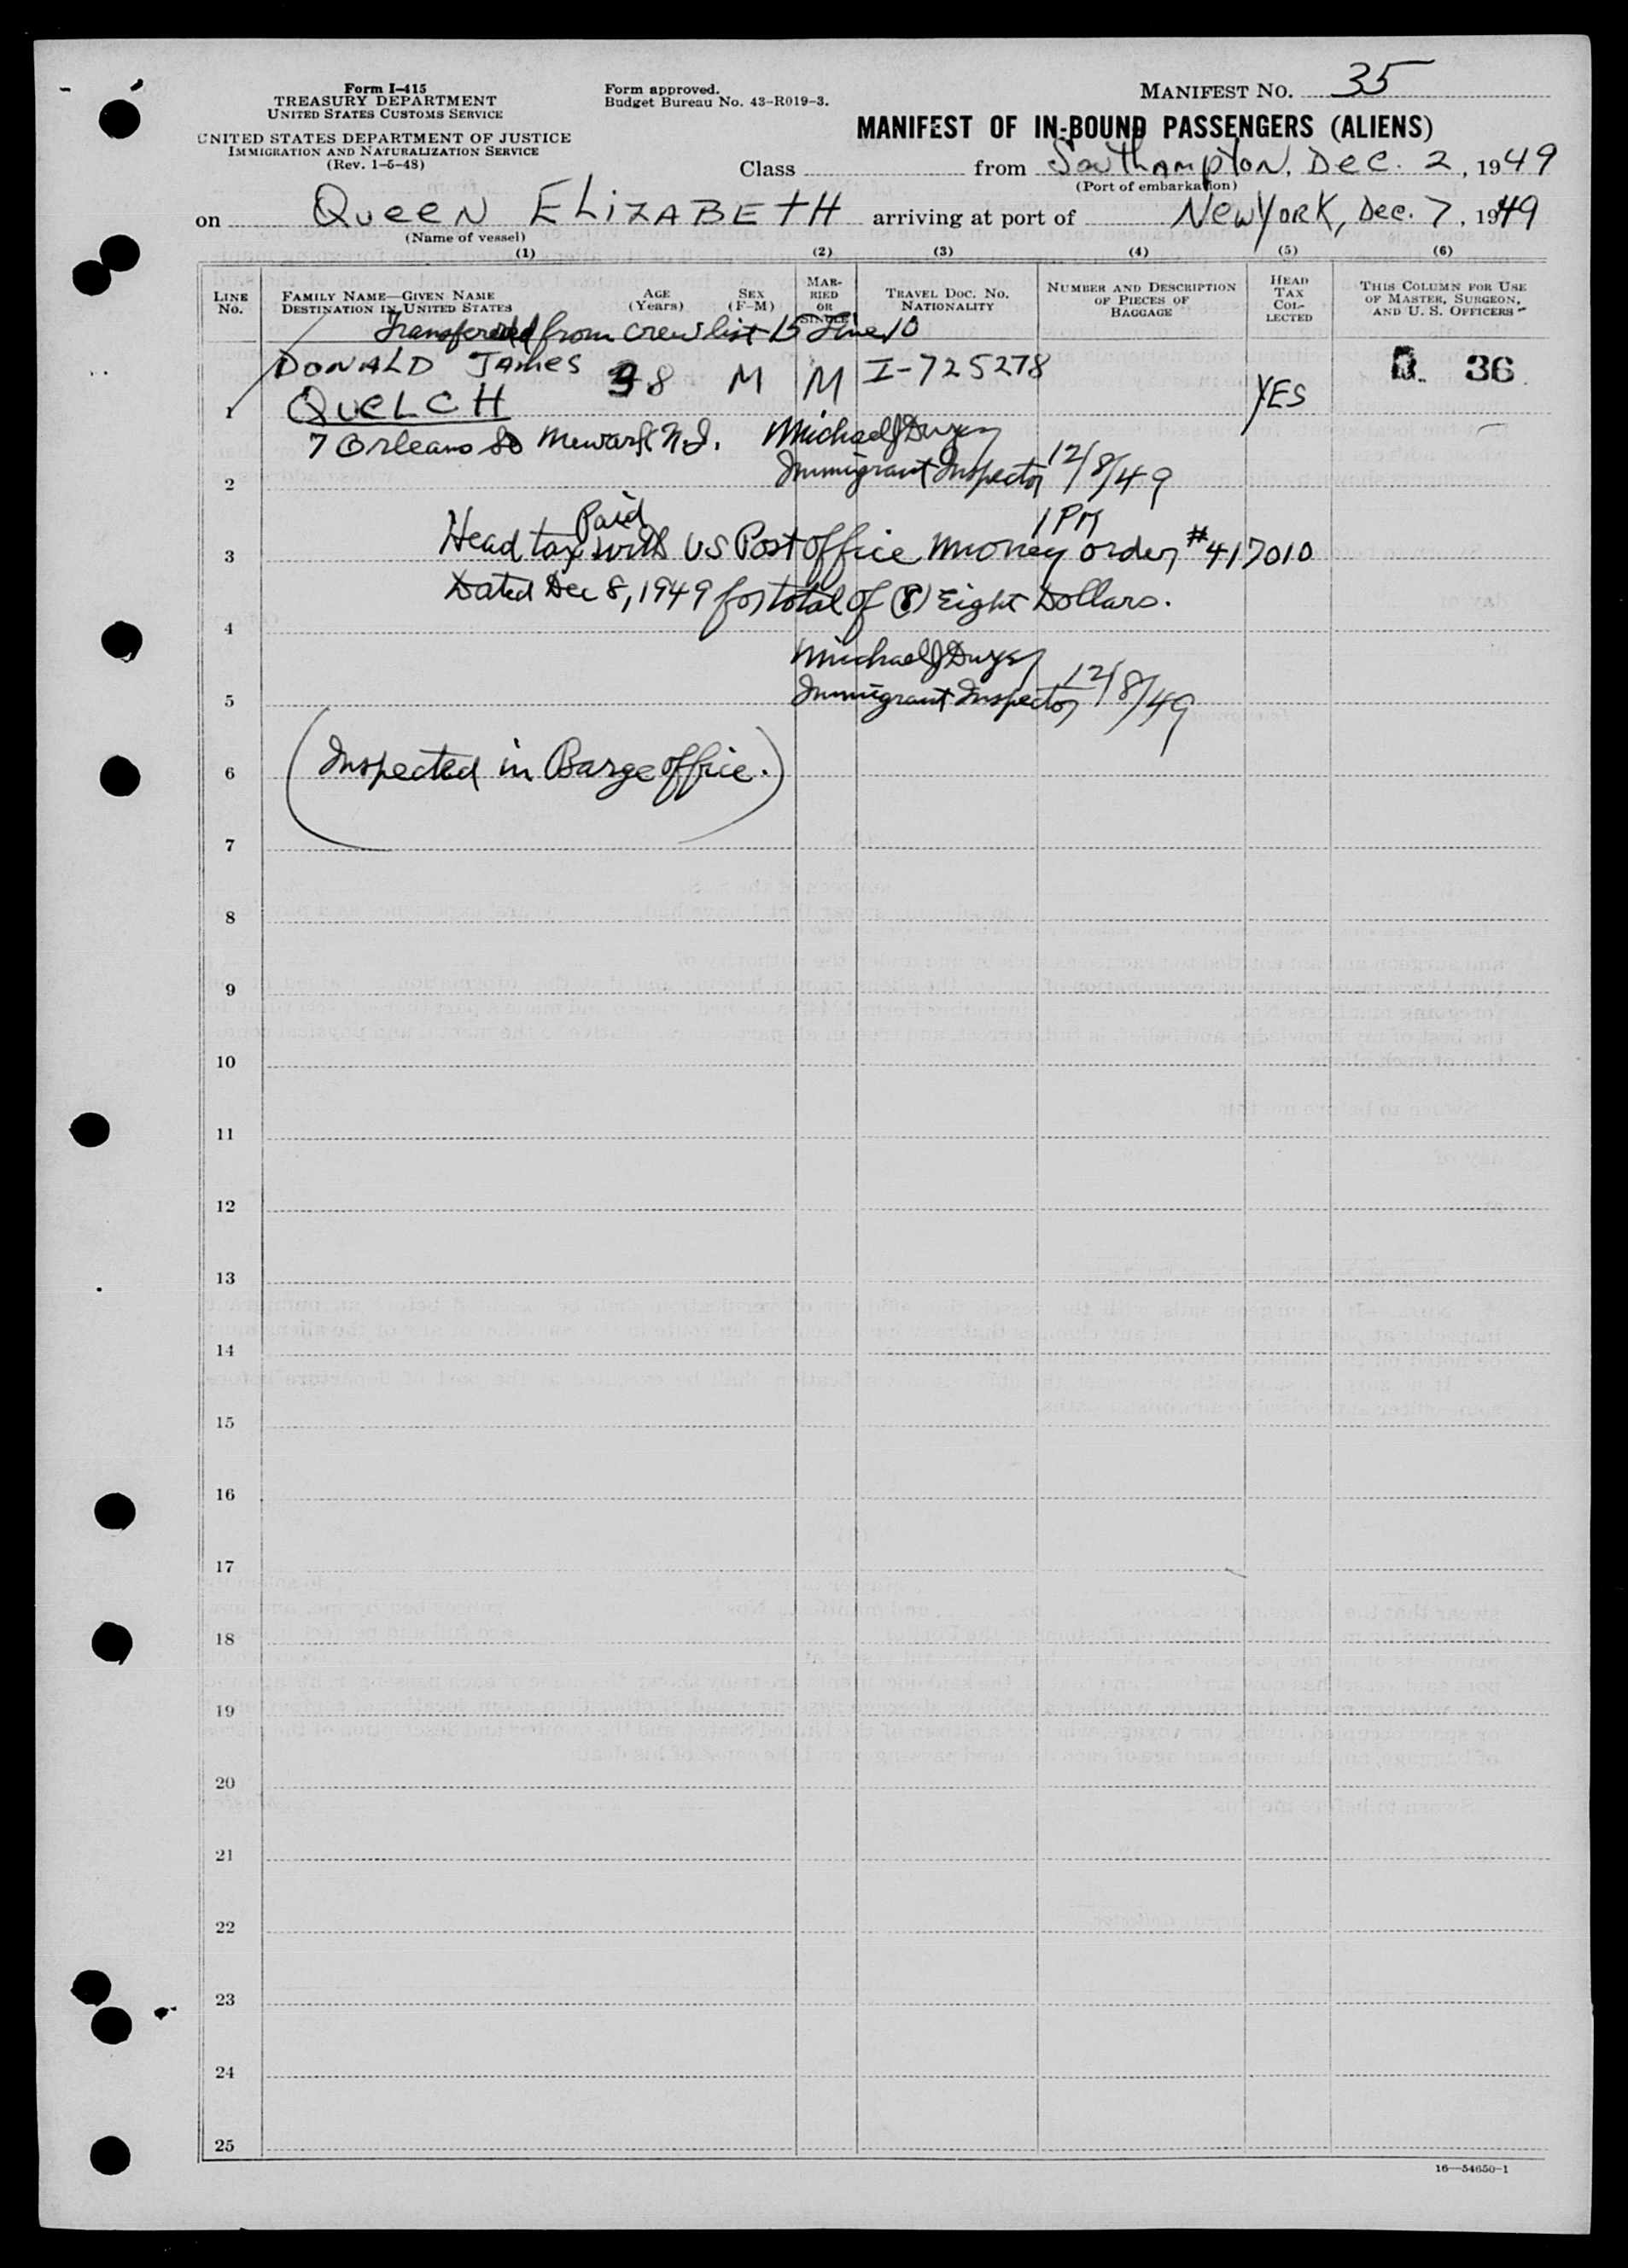 Form I-415
TREASURY DEPARTMENT
UNITED STATES CUSTOMS SERVICE
UNITED STATES DEPARTMENT OF JUSTICE
IMMIGRATION AND NATURALIZATION SERVICE
(Rev. 1-5-48)
Form approved.
Budget Bureau No. 43-R019-3.
MANIFEST NO. 35
MANIFEST OF IN-BOUND PASSENGERS (ALIENS)
Class from Southampton, Dec. 2, 1949
(Port of embarkation)
on Queen ELizABEtH arriving at port of New York, Dec. 7, 1949
(Name of vessel)
(1) (2) (3) (4) (5) (6)
LINE No.
FAMILY NAME—GIVEN NAME
DESTINATION IN UNITED STATES
AGE (Years)
SEX (F-M)
MARRIED OR SINGLE
TRAVEL DOC. NO. NATIONALITY
NUMBER AND DESCRIPTION OF PIECES OF BAGGAGE
HEAD TAX COLLECTED
THIS COLUMN FOR USE OF MASTER, SURGEON, AND U. S. OFFICERS
Transferred from crew list 15 Line 10
DONALD JAMES 38 M M I-725278 36
1 QUELCH YES
7 Orleans Newark N.J. Michael J Dwyer
2 Immigrant Inspector 12/8/49
Paid 1 PM
3 Head tax with US Post office money order #417010
Dated Dec 8, 1949 for total of (8) Eight Dollars.
4
Michael J Dwyer
5 Immigrant Inspector 12/8/49
6 (Inspected in Barge office.)
7
8
9
10
11
12
13
14
15
16
17
18
19
20
21
22
23
24
25
16—54650-1